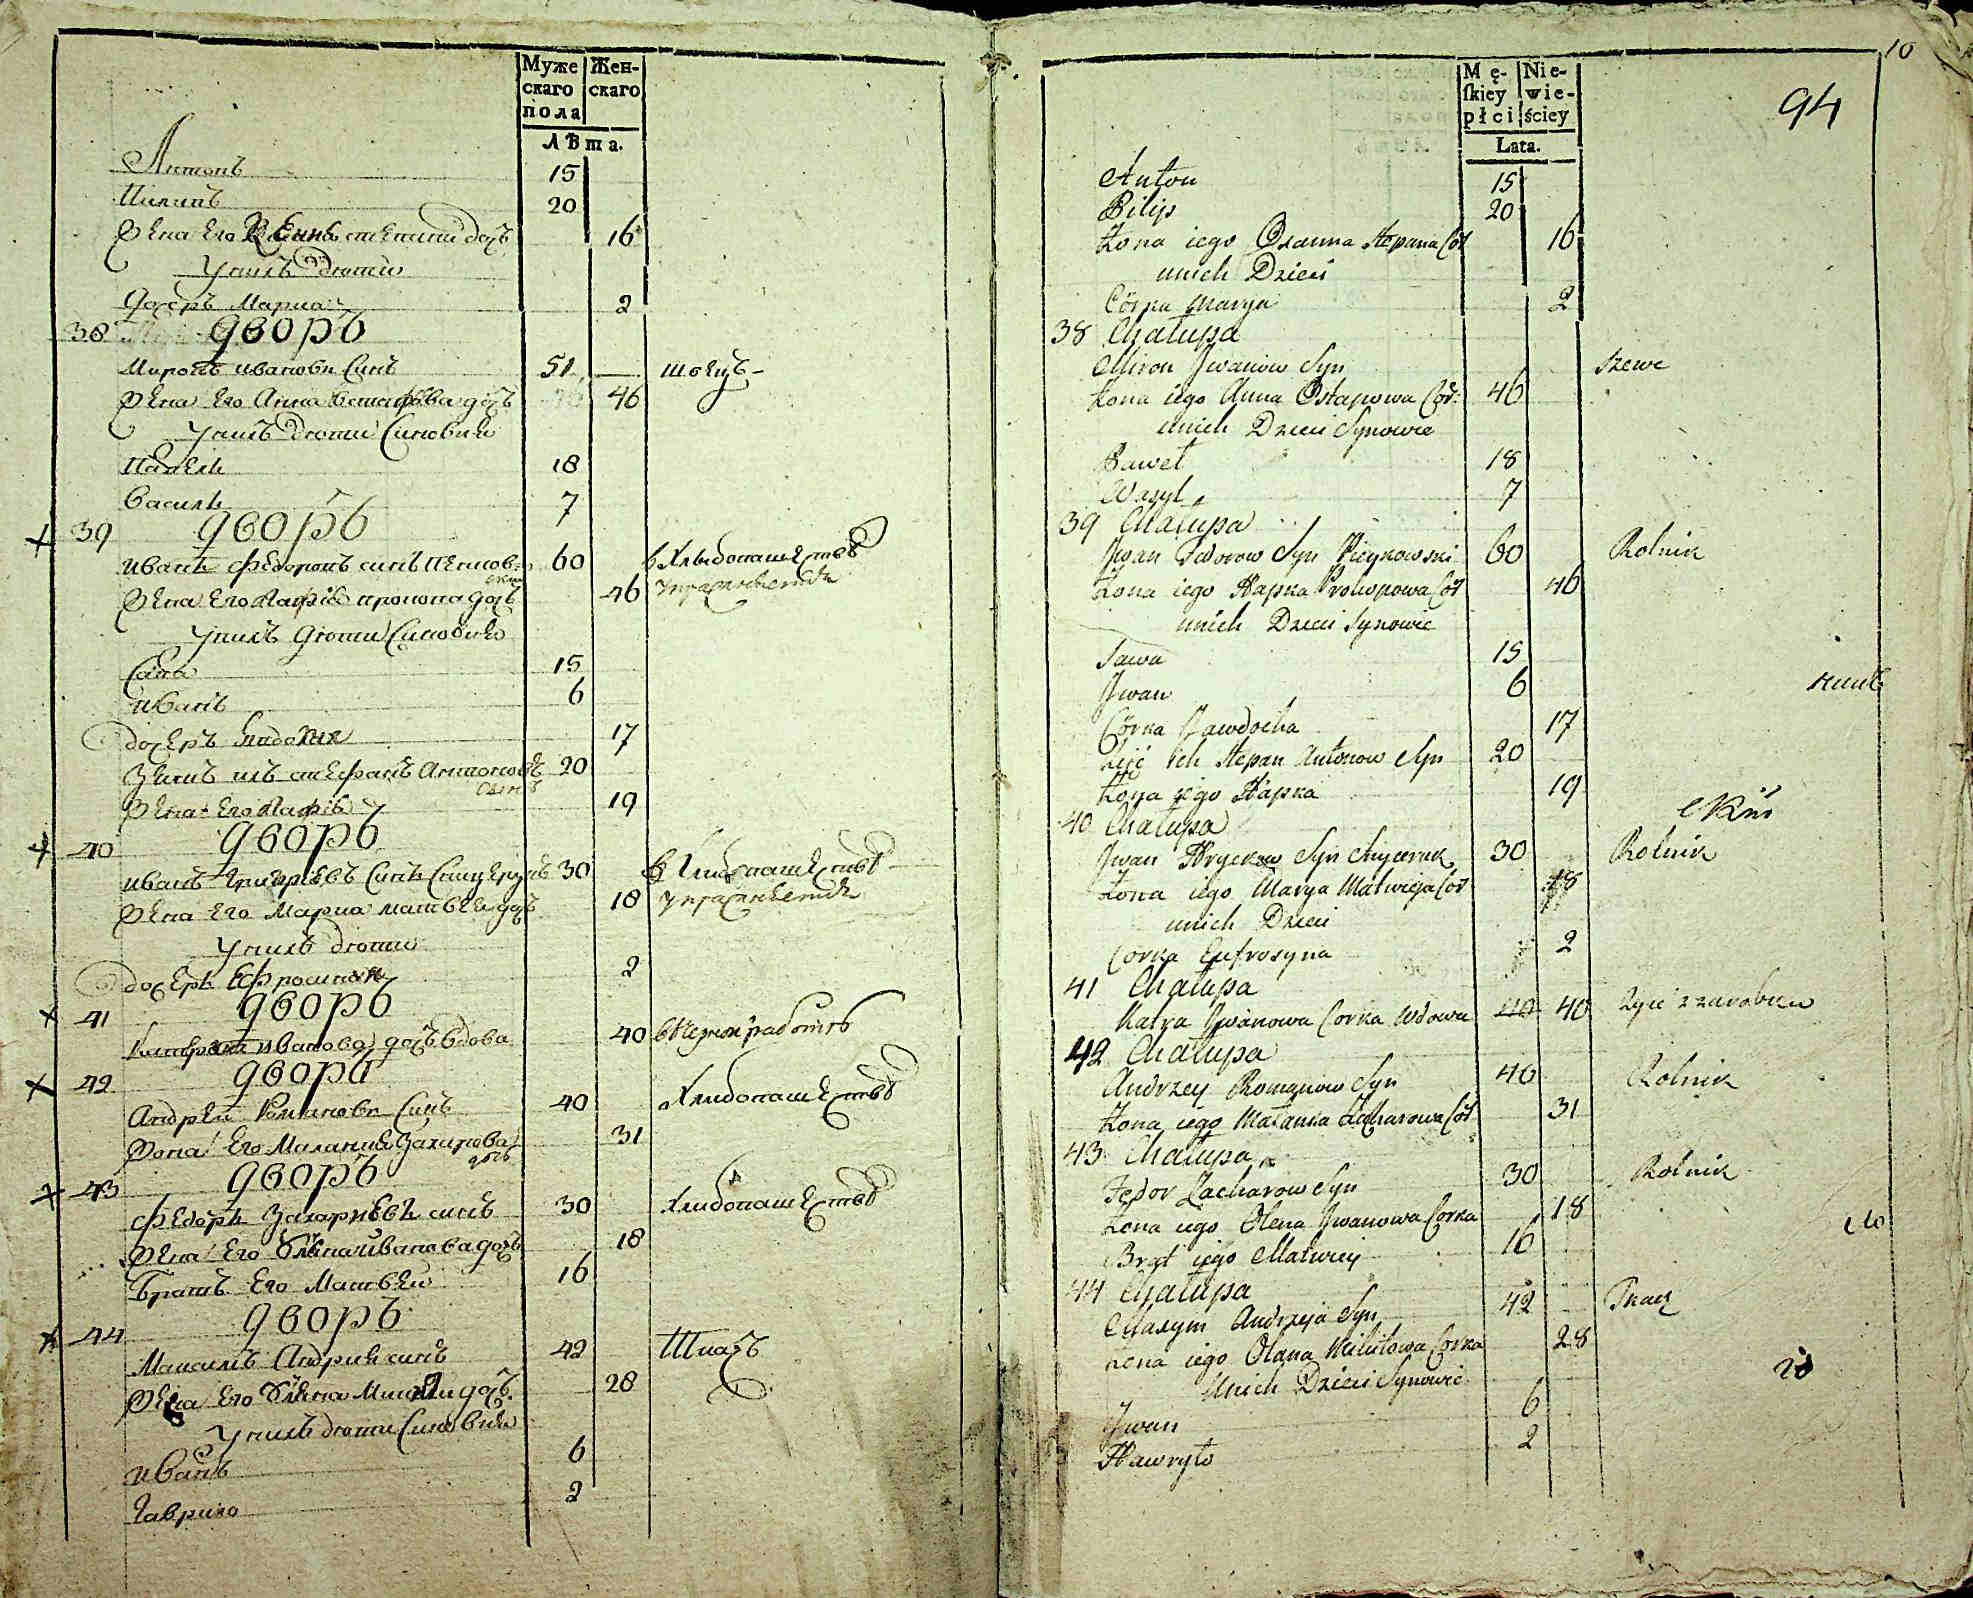 Муже
скаго
пола
Жен-
скаго
лѣта.
Антонъ 15
Пилипъ 20
Жена его степани дочъ 16
У нихъ дѣти
Дочеръ Мариа 2
38 дворъ
Миронъ ивановъ Синъ 51 — шевцъ
Жена его Анна Остапова дочъ 46
У нихъ дѣти Синовии
Павелъ 18
Василь 7
39 дворъ
иванъ Федоровъ синъ 60 в Хлыбопашествѣ
Жена его Гапка прокопа дочъ 46
У нихъ дѣти Синовии
Сава 15
иванъ 6
дочеръ 17
Зять ихъ стефанъ Антоновъ 20
Жена его Гапка 19
40 дворъ
иванъ Григориевъ Синъ 30 в Хлибопашествѣ
Жена его Мариа матвеи дочъ 18
У нихъ дѣти
дочеръ Ефросиния 2
41 дворъ
иванова дочъ вдова 40
42 дворъ
Андрей Романовъ Синъ 40 Хлибопашествѣ
Жена Его Малания Захарова дочъ 31
43 дворъ
Федоръ Захариевъ синъ 30 Хлибопашествѣ
Жена Его Олена иванова дочъ 18
Братъ Его Матвей 16
44 дворъ
Максимъ Андрия синъ 42 Ткачъ
Жена Его дочъ 28
У нихъ дѣти Синовии
иванъ 6
Гаврило 2
10
94
Mę-
skiey
płci
Nie-
wie-
ściey
Lata.
Anton 15
Pilip 20
Żona iego Oxanna Stepana Cór 16
u nich Dzieci
Córka Marya 2
38 Chałupa
Miron Jwanow Syn Szewc
Żona iego Anna Ostapowa Cór: 46
u nich Dzieci Synowie
Paweł 18
Wasyl 7
39 Chałupa
Jwan Fedorow Syn 60 Rolnik
Żona iego Hapka Prokopowa Cór 46
u nich Dzieci Synowie
Sawa 15
Jwan 6
Córka Jawdocha 17
Zięć ich Stepan Antonow Syn 20
Żona iego Hapka 19
40 Chałupa
Jwan Hryckow Syn 30 Rolnik
Żona iego Marya Matwieja Cór 18
u nich Dzieci
Corka Eufrosyna 2
41 Chałupa
Katrya Jwanowa Corka Wdowa 40 40 żyie z zarobku
42 Chałupa
Andrzey Romanow Syn 40 Rolnik
Żona iego Małanka Zacharowa Cór 31
43 Chałupa
Fedor Zacharow Syn 30 Rolnik
Żona iego Olena Jwanowa Corka 18
Brat iego Matwiey 16
44 Chałupa
Maxym Andrzeja Syn 42 Tkacz
Żona iego Olana Mikitowa Corka 28
U nich Dzieci Synowie
Jwan 6
Hawryło 2